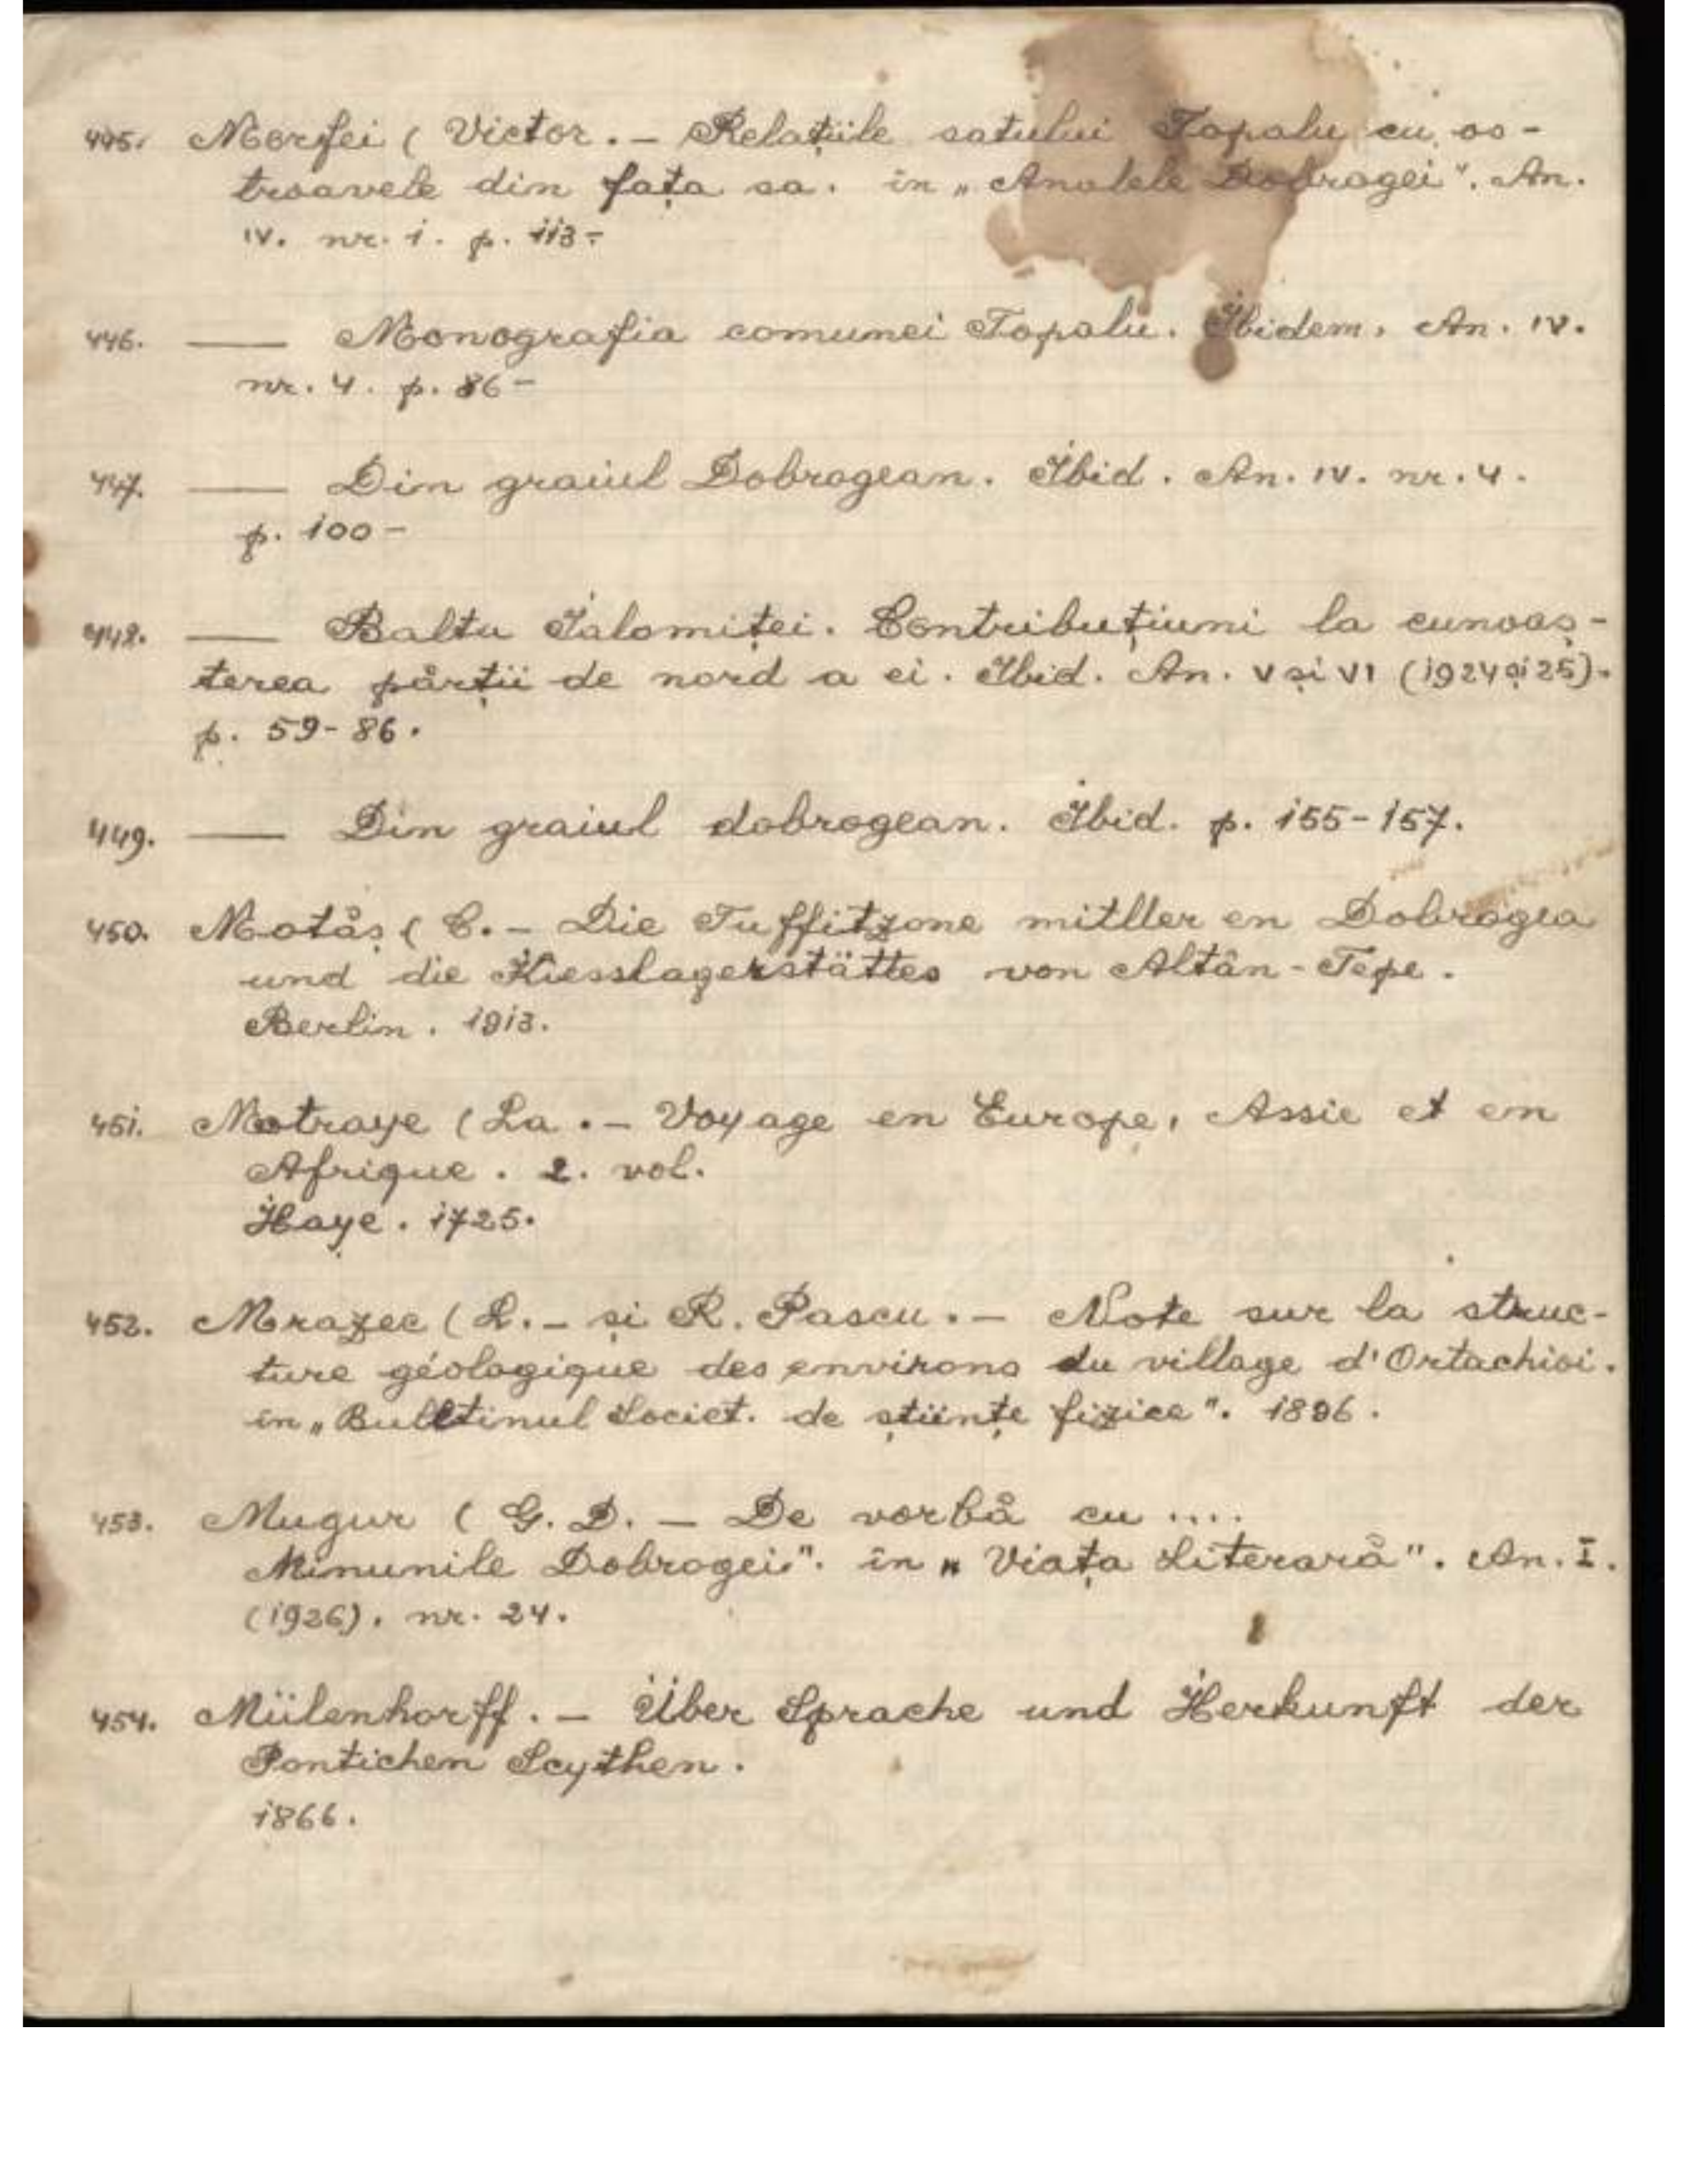 445. Morfei ( Victor. – Relațiile satului Topalu cu os-
troavele din fața sa. în „Analele Dobrogei". An.
IV. nr. 1. p. 113-
446. —— Monografia comunei Topalu. Ibidem. An. IV.
nr. 4. p. 86-
447. —— Din graiul Dobrogean. Ibid. An. IV. nr. 4.
p. 100-
448. —— Balta Ialomiței. Contribuțiuni la cunoaș-
terea părții de nord a ei. Ibid. An. V și VI (1924 și 25).
p. 59-86.
449. —— Din graiul dobrogean. Ibid. p. 155-157.
450. Motăș ( C. – Die Tuffitzone mitller en Dobrogea
und die Kiesslagerstättes von Altân-Tepe.
Berlin. 1913.
451. Motraye ( La. – Voyage en Europe, Assie et en
Afrique. 2. vol.
Haye. 1725.
452. Mrazec ( L. – și R. Pascu. – Note sur la struc-
ture géologique des environs du village d'Ortachioi.
în „Bulletinul Societ. de științe fizice". 1896.
453. Mugur ( G. D. – De vorbă cu ....
Minunile Dobrogei". în „Viața Literară". An. I.
(1926). nr. 24.
454. Mülenhorff. – Über Sprache und Herkunft der
Pontichen Scythen.
1866.